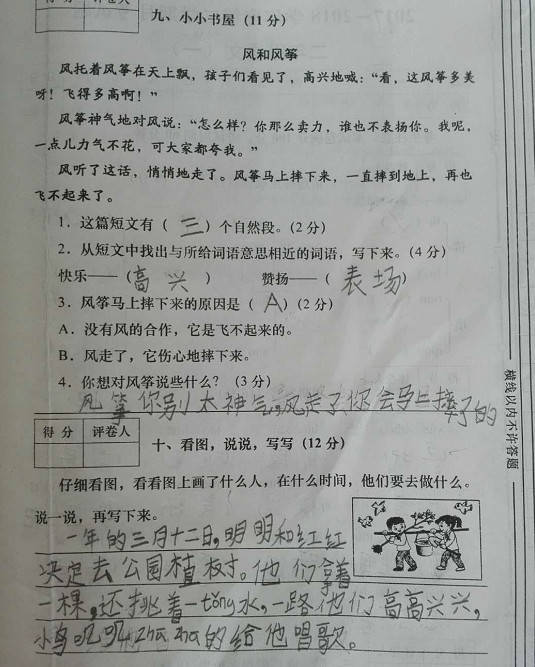 得 分 评卷人
九、小小书屋（11 分）
风和风筝
风托着风筝在天上飘，孩子们看见了，高兴地喊：“看，这风筝多美
呀！飞得多高啊！”
风筝神气地对风说：“怎么样？你那么卖力，谁也不表扬你。我呢，
一点儿力气不花，可大家都夸我。”
风听了这话，悄悄地走了。风筝马上摔下来，一直摔到地上，再也
飞不起来了。
1．这篇短文有（ 三 ）个自然段。（2 分）
2．从短文中找出与所给词语意思相近的词语，写下来。（4 分）
快乐——（高 兴 ） 赞扬——（ 表扬）
3．风筝马上摔下来的原因是（ A ）（2 分）
A．没有风的合作，它是飞不起来的。
B．风走了，它伤心地摔下来。
4．你想对风筝说些什么？（3 分）
风筝你别太神气，风走了，你会马上摔了的
得 分 评卷人
十、看图，说说，写写（12 分）
仔细看图，看看图上画了什么人，在什么时间，他们要去做什么。
说一说，再写下来。
一年的三月十二日，明明和红红
决定去公园植树。他们拿着
一棵，还挑着一tǒng水，一路他们高高兴兴，
小鸟叽叽zhazha的给他唱歌。
横线以内不许答题